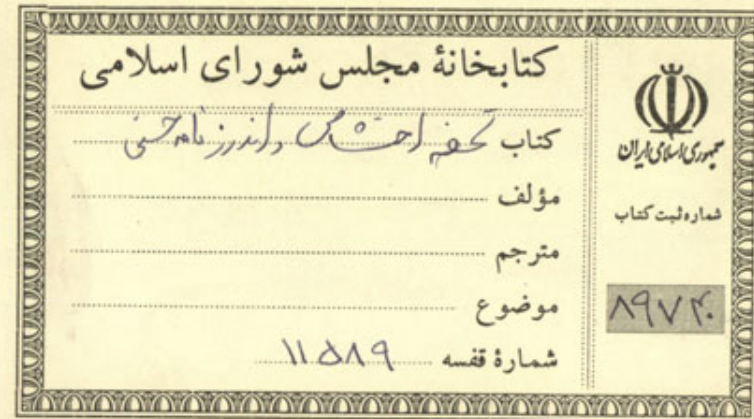 کتابخانهٔ مجلس شورای اسلامی
کتاب تحفه و اندرزنامه حسنی
مؤلف
مترجم
موضوع
شمارهٔ قفسه ۱۱۵۸۹
جمهوری اسلامی ایران
شماره ثبت کتاب
۸۹۷۴۰